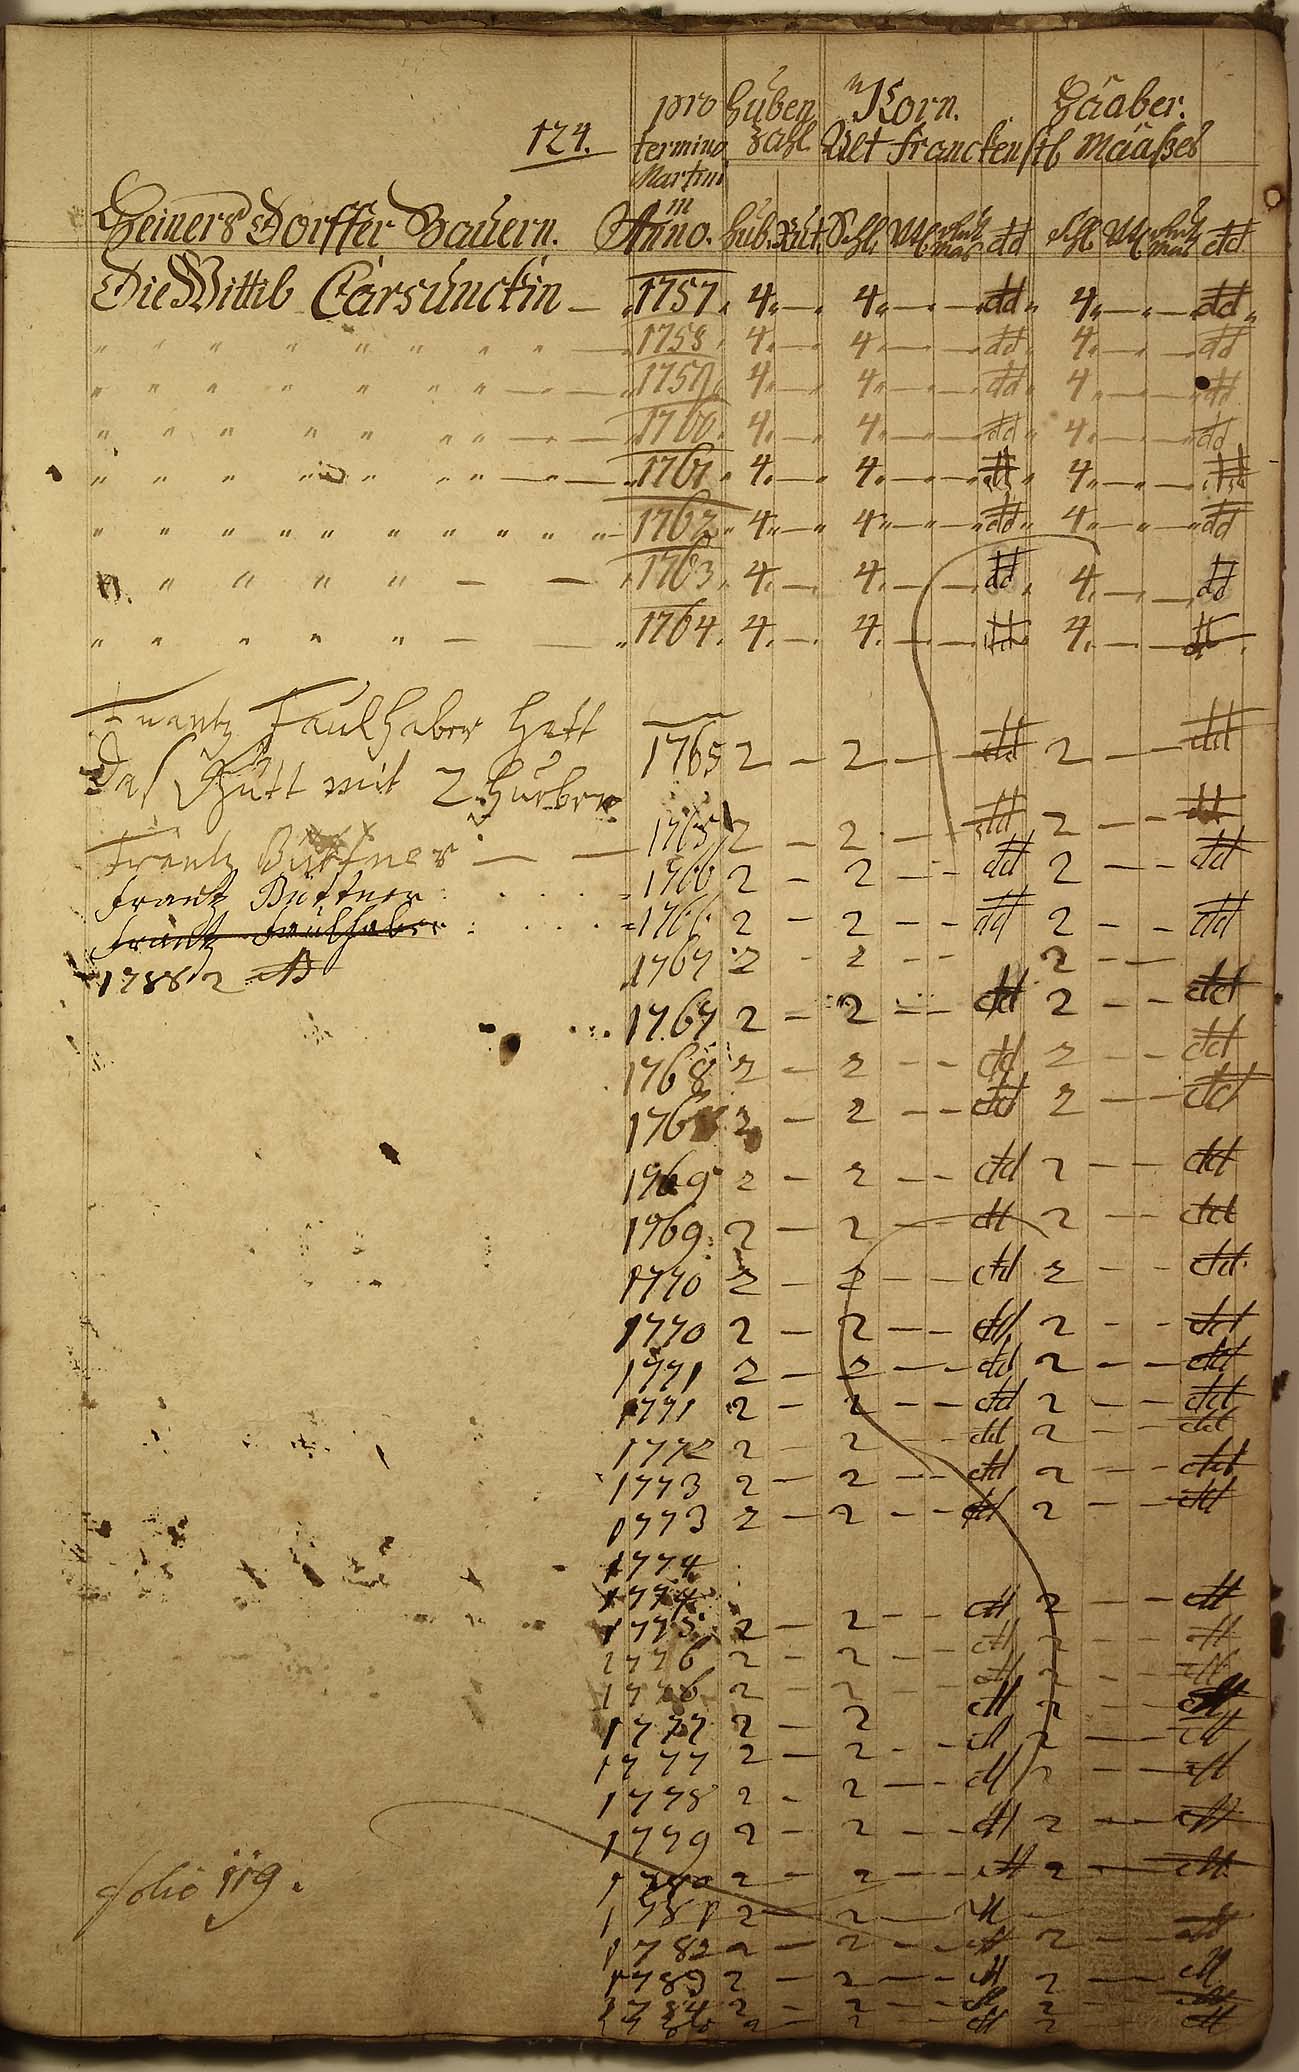 124.
pro termino Martini in Anno.
Huben Zahl
Korn.
Haaber.
Alt Francken
Heiners Dorffer Bauern.
Hub. Rut. Schl.
Die Wittib Carsunckin — 1757. 4. — 4. — — dd 4. — — dd
" 1758. 4. — 4. — — dd 4. — — dd
" 1759. 4. — 4. — — dd 4. — — dd
" 1760. 4. — 4. — — dd 4. — — dd
" 1761. 4. — 4. — — dd 4. — — dd
" 1762. 4. — 4. — — dd 4. — — dd
" 1763. 4. — 4. — — dd 4. — — dd
" 1764. 4. — 4. — — dd 4. — — dd
Frantz Faulhaber Hatt
Das Gutt mit 2 Hueben
1765 2 — 2 — — dd 2 — — dd
Frantz Büttner — — 1765 2 — 2 — dd 2 — — dd
Frantz Büttner 1766 2 — 2 — — dd 2 — — dd
Frantz Faulhaber 1766 2 — 2 — — dd 2 — — dd
1788 2 1767 2 - 2 — — 2 — —
1767 2 — 2 — — dd 2 — — dd
1768 2 — 2 — — dd 2 — — dd
176 2 — 2 — — dd 2 — — dd
1769 2 — 2 — — dd 2 — — dd
1769 2 — 2 — dd 2 — — dd
1770 2 — 2 — — dd 2 — — dd
1770 2 — 2 — — dd 2 — — dd
1771 2 — 2 — — dd 2 — — dd
1771 2 — 2 — — dd 2 — — dd
1772 2 — 2 — — dd 2 — — dd
1773 2 — 2 — — dd 2 — — dd
1773 2 — 2 — — dd 2 — — dd
1774
1774
1775 2 — 2 — — dd 2 — — dd
1776 2 — 2 — — dd 2 — — dd
1776 2 — 2 — dd 2 — — dd
1777 2 — 2 dd 2 — — dd
1777 2 — 2 — — dd 2 — — dd
1778 2 — 2 — — dd 2 — — dd
1779 2 — 2 — — dd 2 — — dd
folio 119.
1780 2 — 2 — — dd 2 — — dd
1781 2 — 2 — dd
1782 2 — 2 — — dd 2 — — dd
1783 2 — 2 — — dd 2 — — dd
1784 2 — 2 — — dd 2 — — dd
2 — 2 — — dd 2 — — dd